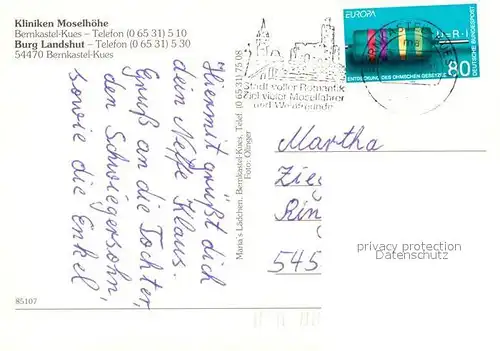 Kliniken Moselhöhe
Bernkastel-Kues – Telefon (0 65 31) 5 10
Burg Landshut – Telefon (0 65 31) 5 30
54470 Bernkastel-Kues
Hiermit grüßt dich
dein Neffe Klaus.
Gruß an die Tochter,
den Schwiegersohn,
sowie die Enkel
85107
Maria's Lädchen, Bernkastel-Kues, Telef. (0 65 31) 75 08
Foto: Olinger
Stadt voller Romantik
Ziel vieler Moselfahrer
und Weinfreunde
EUROPA
U=R·I
DEUTSCHE BUNDESPOST
ENTDECKUNG DES OHMSCHEN GESETZES
80
Martha
Zieg
Rin
545
privacy protection
Datenschutz